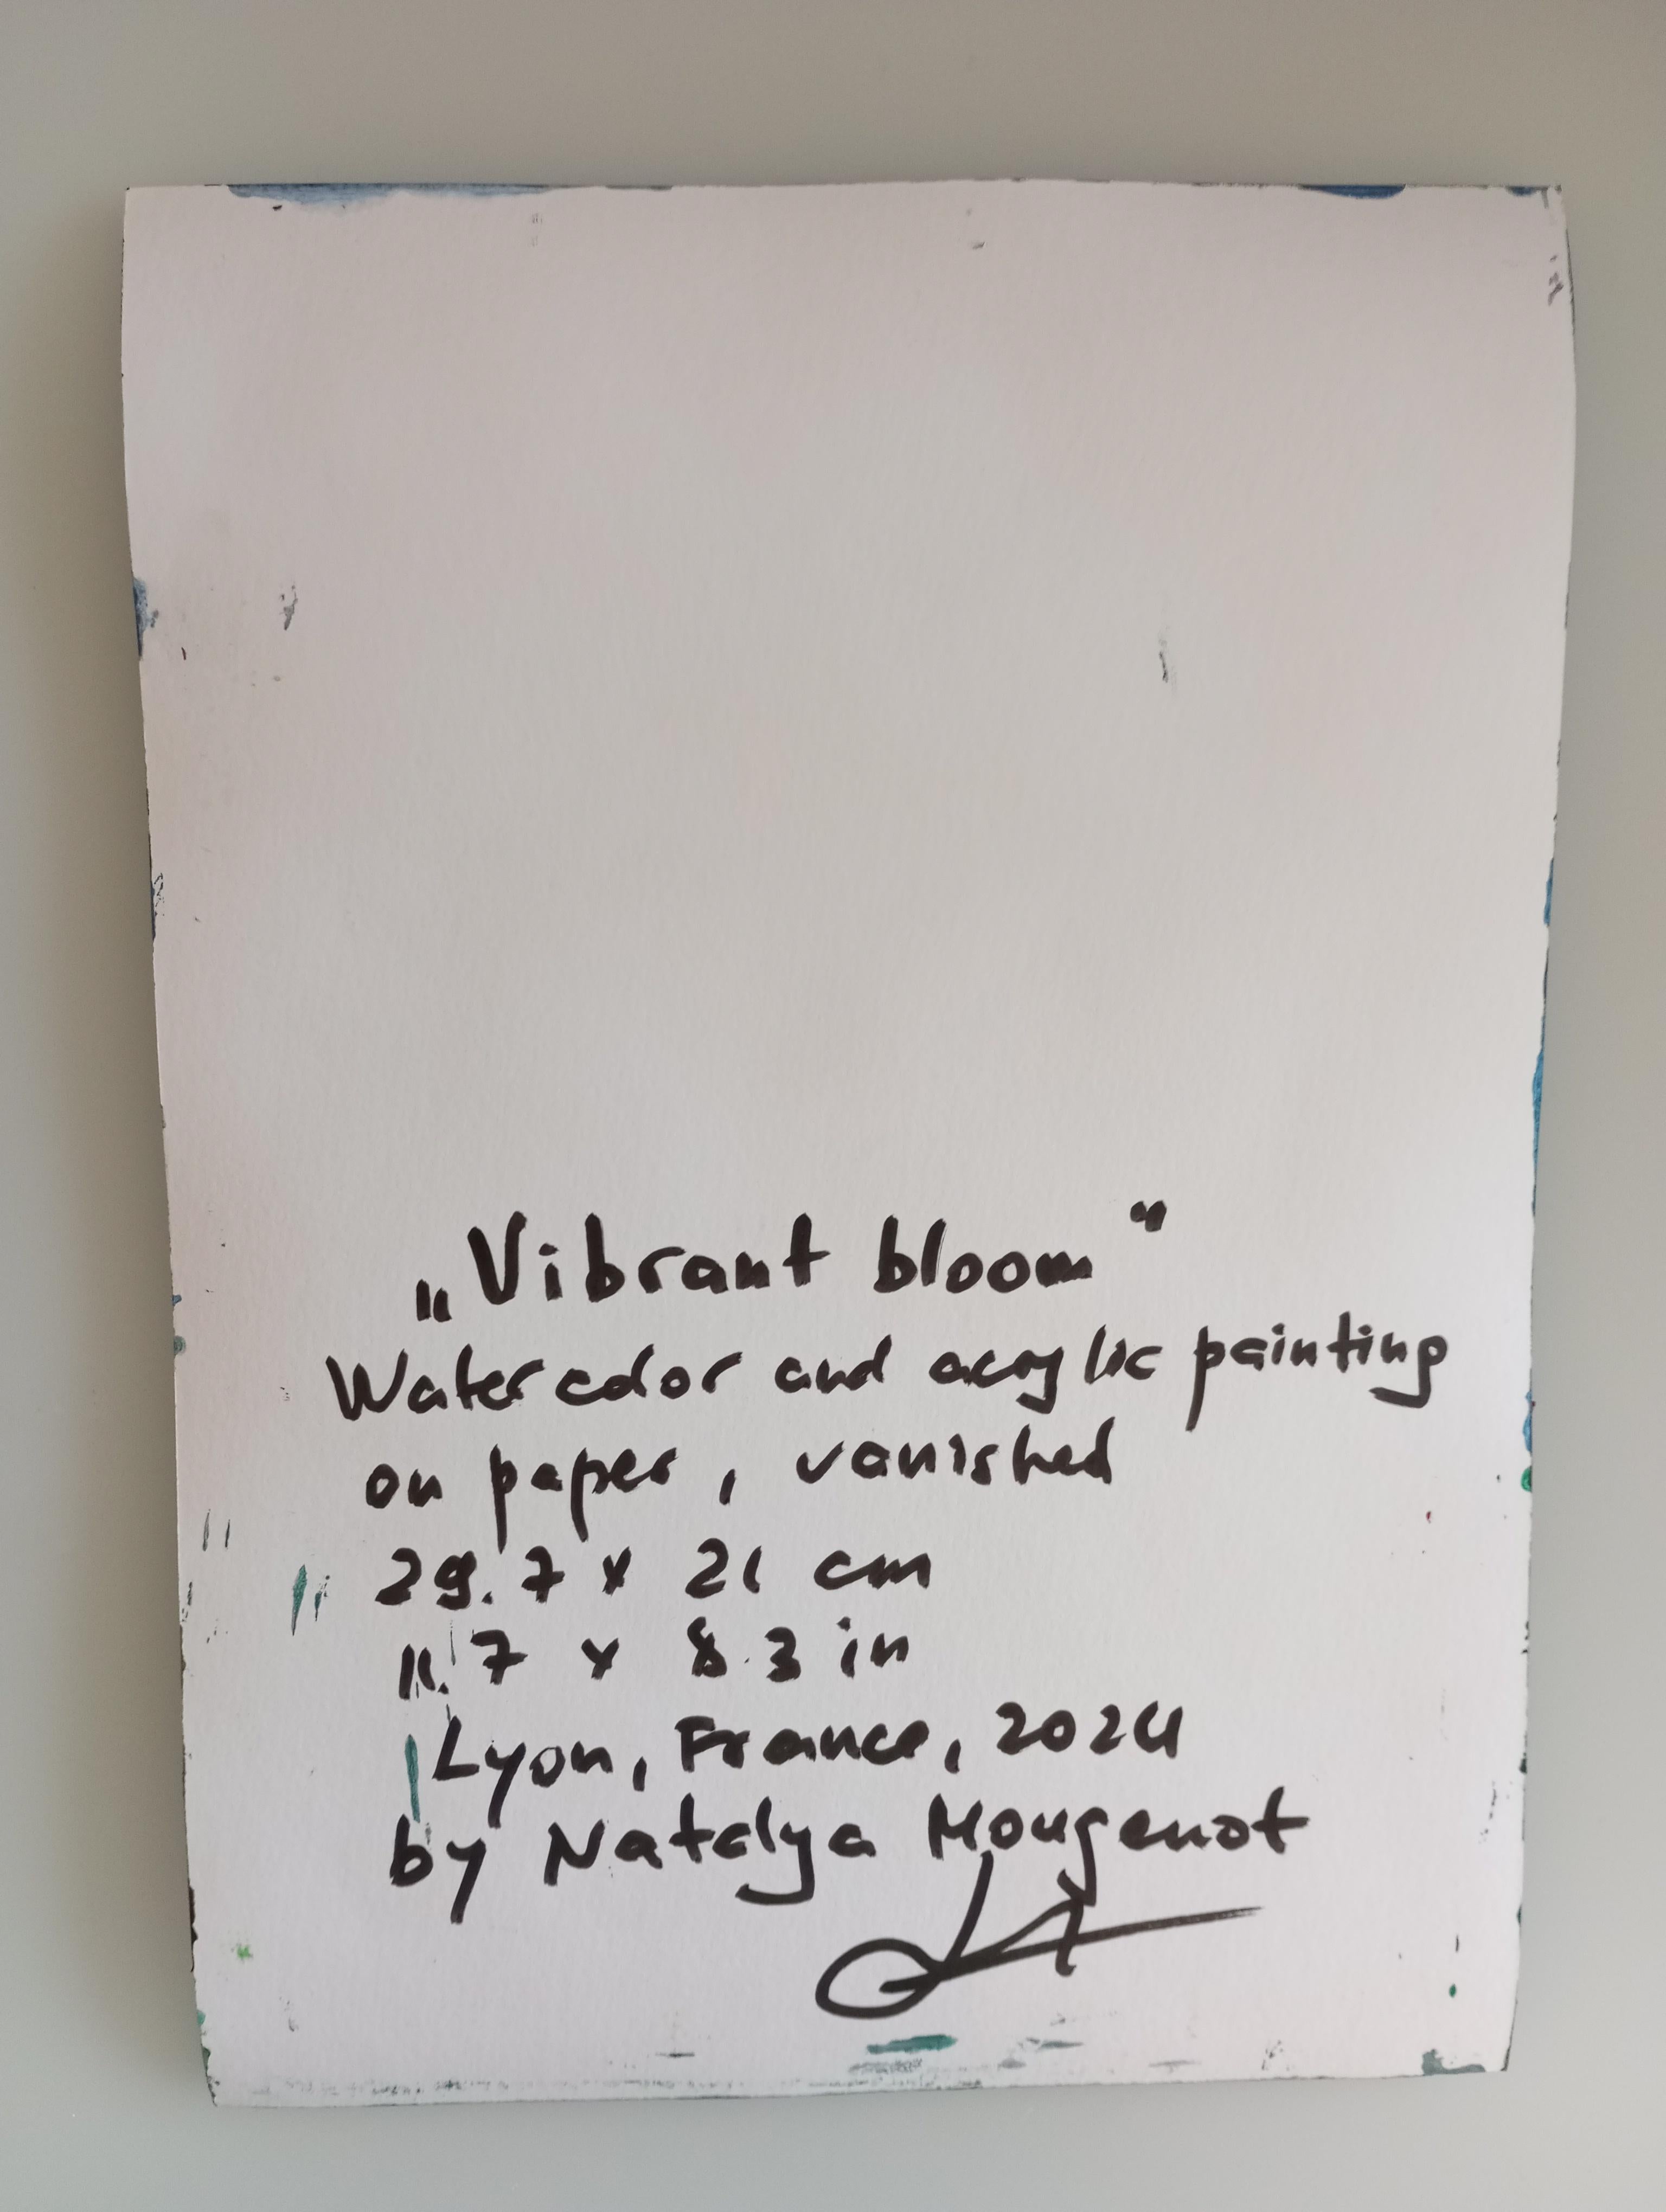 „Vibrant bloom“
Watercolor and acrylic painting
on paper, vanished
29.7 x 21 cm
11.7 x 8.3 in
Lyon, France, 2024
by Natalya Mougenot